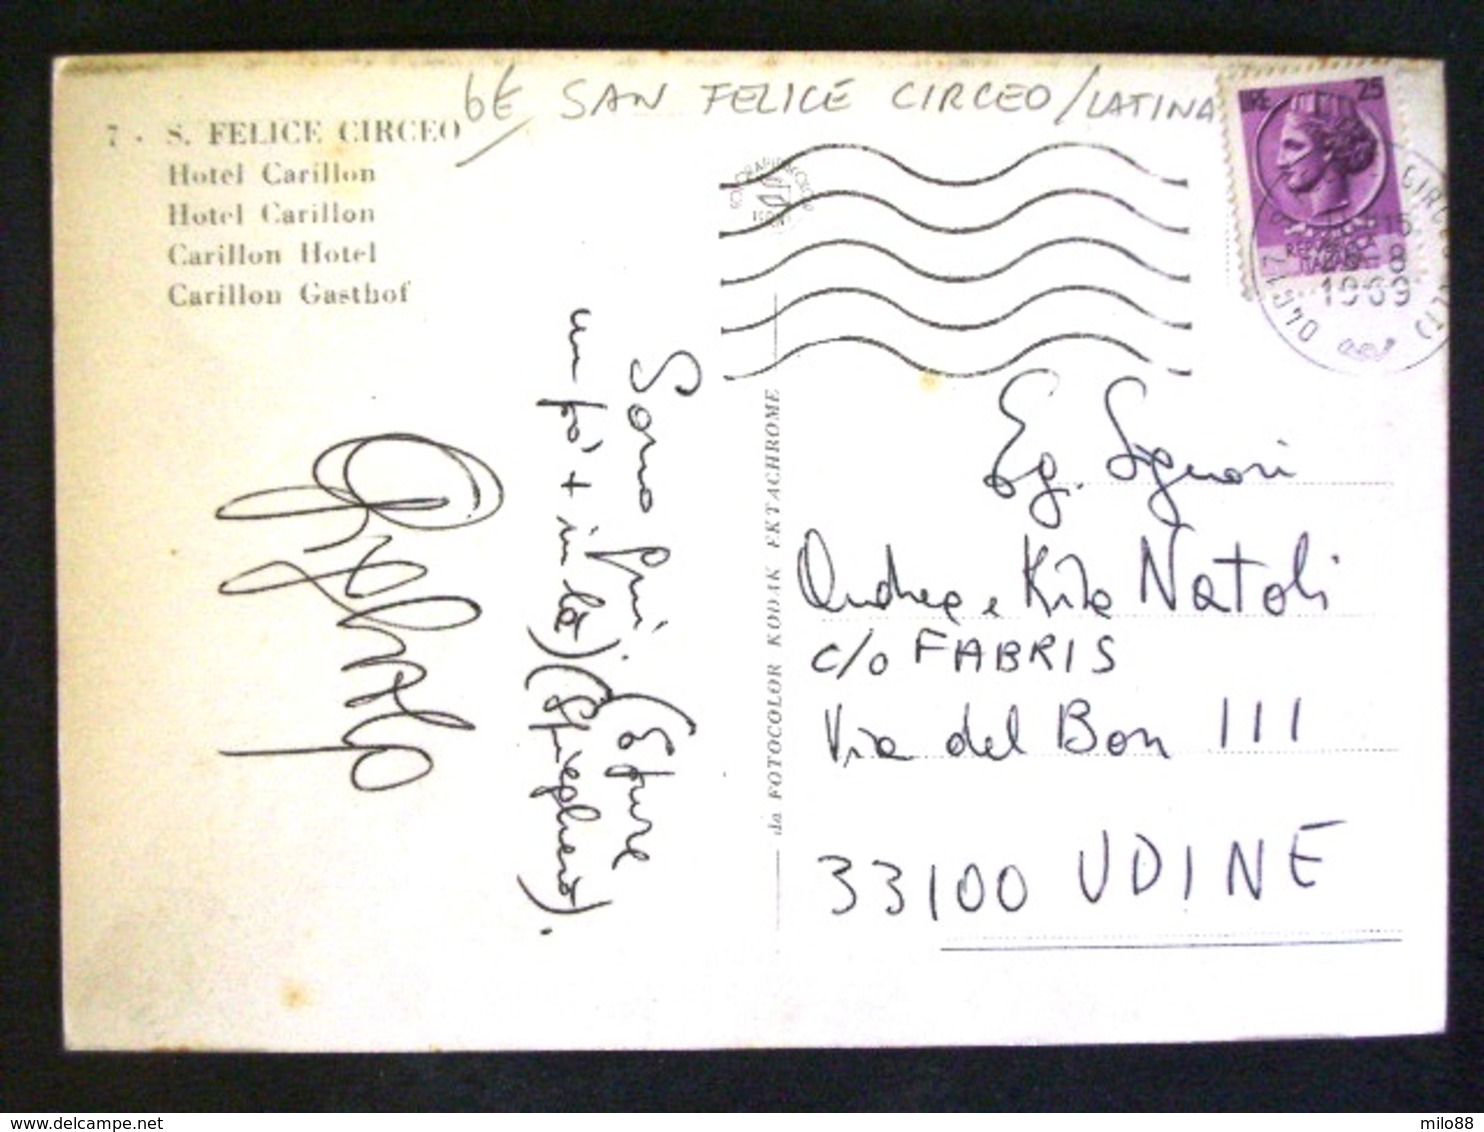 6€ SAN FELICE CIRCEO/LATINA
7 - S. FELICE CIRCEO
Hotel Carillon
Hotel Carillon
Carillon Hotel
Carillon Gasthof
LIRE 25
REPUBBLICA
ITALIANA
15
8
1969
04017
Sono qui. (Eppure
un po' + in là) (Spiegherò).
da FOTOCOLOR KODAK EKTACHROME
Eg. Signori
Andrea e Kita Natoli
c/o FABRIS
Via del Bon 111
33100 UDINE
delcampe.net
milo88